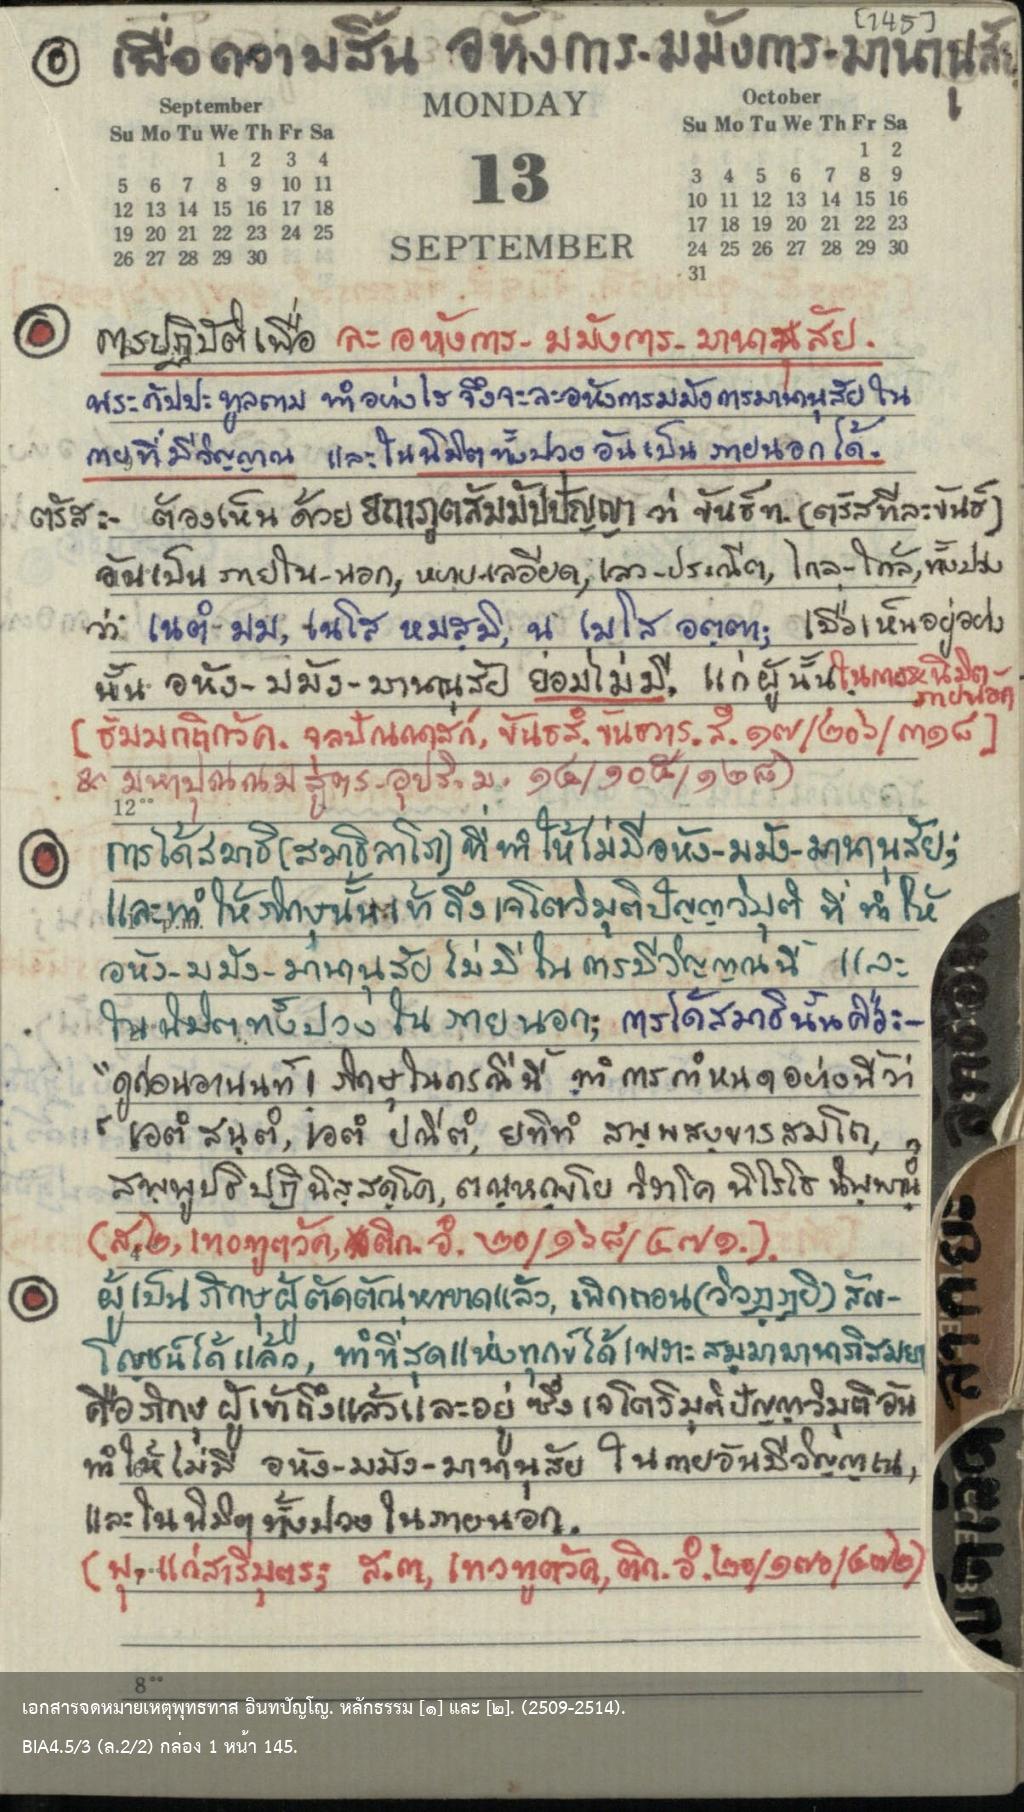 [145]
๏ เพื่อความสิ้น อหังการ-มมังการ-มานานุสัย
September
Su Mo Tu We Th Fr Sa
1 2 3 4
5 6 7 8 9 10 11
12 13 14 15 16 17 18
19 20 21 22 23 24 25
26 27 28 29 30
MONDAY
13
SEPTEMBER
October
Su Mo Tu We Th Fr Sa
1 2
3 4 5 6 7 8 9
10 11 12 13 14 15 16
17 18 19 20 21 22 23
24 25 26 27 28 29 30
31
การปฏิบัติเพื่อ ละ อหังการ- มมังการ- มานานุสัย.
พระกัปปะ ทูลถาม ทำอย่างไร จึงจะละอหังการมมังการมานานุสัย ใน
กายที่มีวิญญาณ และในนิมิตทั้งปวง อันเป็น ภายนอกได้.
ตรัส:- ต้องเห็น ด้วย ยถาภูตสัมมัปปัญญา ว่า ขันธ์ห. (ตรัสทีละขันธ์)
อันเป็น ภายใน-นอก, หยาบ-ละเอียด, เลว-ประณีต, ไกล-ใกล้, ทั้งปวง
ว่า เนตํ มม, เนโส หมสฺมิ, น เมโส อตฺตา; เมื่อเห็นอยู่อย่าง
นั้น อหัง-มมัง-มานานุสัย ย่อมไม่มี, แก่ผู้นั้นในกาย+นิมิต
ภายนอก
[ธัมมกถิกวัค. จุลปัณณาสก์, ขันธสํ. ขันธวาร. สํ. ๑๗/๒๐๖/๓๑๘]
& มหาปุณณมสูตร อุปริ. ม. ๑๔/๑๐๕/๑๒๘)
12°°
การได้สมาธิ (สมาธิลาโภ) ที่ทำให้ไม่มีอหัง-มมัง-มานานุสัย;
และทำให้ภิกษุนั้นเข้าถึงเจโตวิมุติปัญญาวิมุติ ที่ทำให้
p.m.
อหัง-มมัง-มานานุสัย ไม่มี ใน กายมีวิญญาณนี้ และ
ในนิมิตทั้งปวง ใน ภายนอก; การได้สมาธินั้นคือ:-
"ดูก่อนอานนท์! ภิกษุในกรณีนี้ ทำการกำหนดอย่างนี้ว่า
'เอตํ สนฺตํ, เอตํ ปณีตํ, ยทิทํ สพฺพสงฺขารสมโถ,
สพฺพูปธิปฏินิสฺสคฺโค, ตณฺหกฺขโย วิราโค นิโรโธ นิพฺพานํ'
(สู.๒, เทวทูตวัค, ติก. อํ. ๒๐/๑๖๘/๔๗๑.).
4
ผู้เป็นภิกษุผู้ตัดตัณหาขาดแล้ว, เพิกถอน (วิวฏฺฏยิ) สัญ-
โญชน์ได้แล้ว, ทำที่สุดแห่งทุกข์ได้ เพราะ สมฺมามานาภิสมยา
คือภิกษุ ผู้เข้าถึงแล้วและอยู่ ซึ่ง เจโตวิมุติปัญญาวิมุติ อัน
ทำให้ไม่มี อหัง-มมัง-มานานุสัย ในกายอันมีวิญญาณ,
และในนิมิตทั้งปวง ในภายนอก.
(พุ. แก่สารีบุตร; สู.๓, เทวทูตวัค, ติก. อํ. ๒๐/๑๗๐/๔๗๒)
8°°
เอกสารจดหมายเหตุพุทธทาส อินทปัญโญ. หลักธรรม [๑] และ [๒]. (2509-2514).
BIA4.5/3 (ล.2/2) กล่อง 1 หน้า 145.